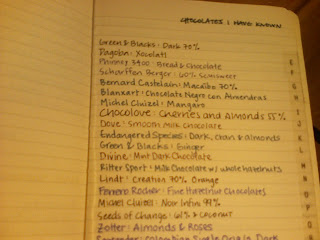 CHOCOLATES I HAVE KNOWN
Green & Blacks: Dark 70%
Dagoba: Xocolatl
Phinney 3400: Bread & Chocolate
Scharffen Berger: 60% Semisweet
Bernard Castelain: Macaibo 70%
Blanxart: Chocolate Negro con Almendras
Michel Cluizel: Mangaro
Chocolove: Cherries and Almonds 55%
Dove: Smooth Milk Chocolate
Endangered Species: Dark, Cran & almonds
Green & Blacks: Ginger
Divine: Mint Dark Chocolate
Ritter Sport: Milk Chocolate w/ whole hazelnuts
Lindt: Creation 70% Orange
Ferrero Rocher: Fine Hazelnut Chocolates
Michel Cluizel: Noir Infini 99%
Seeds of Change: 61% & Coconut
Zotter: Almonds & Roses
Colombian Single Origin Dark